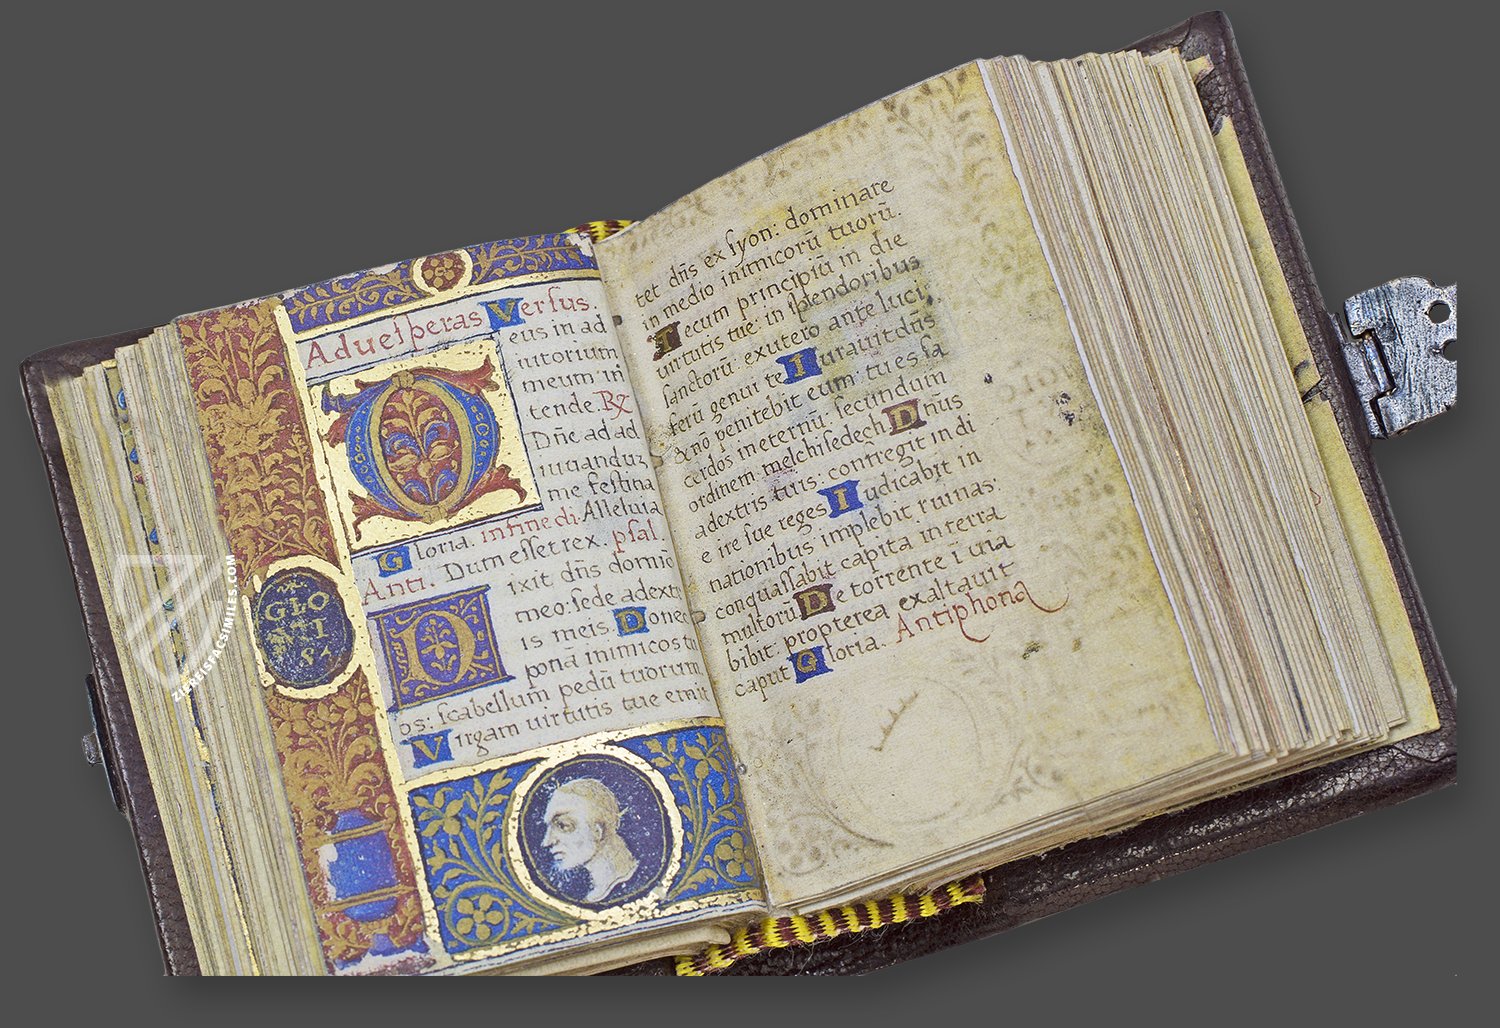 Aduesperas Versus
eus in ad
iutorium
meum in
tende. R
Dñe ad ad
iuuanduz
me festina
Gloria. in fine. di Alleluia
Anti. Dum esset rex. psal
Dixit dñs domĩo
meo: sede adext
is meis. Donec
ponã inimicos tu
os: scabellum pedũ tuorum
Virgam uirtutis tue emit
GLO
VI
S
tet dñs ex syon: dominare
in medio inimicorũ tuorũ.
Tecum principiũ in die
uirtutis tue: in splendoribus
sanctorũ exutero ante luci
ferũ genui te Iurauit dñs
& nõ penitebit eum tu es sa
cerdos in eternũ secundum
ordinem melchisedech Dñus
adextris tuis: confregit in di
e ire sue reges Iudicabit in
nationibus implebit ruinas:
conquassabit capita in terra
multorũ De torrente ĩ uia
bibit: propterea exaltauit
caput Gloria. Antiphona
ZIEREISFACSIMILES.COM